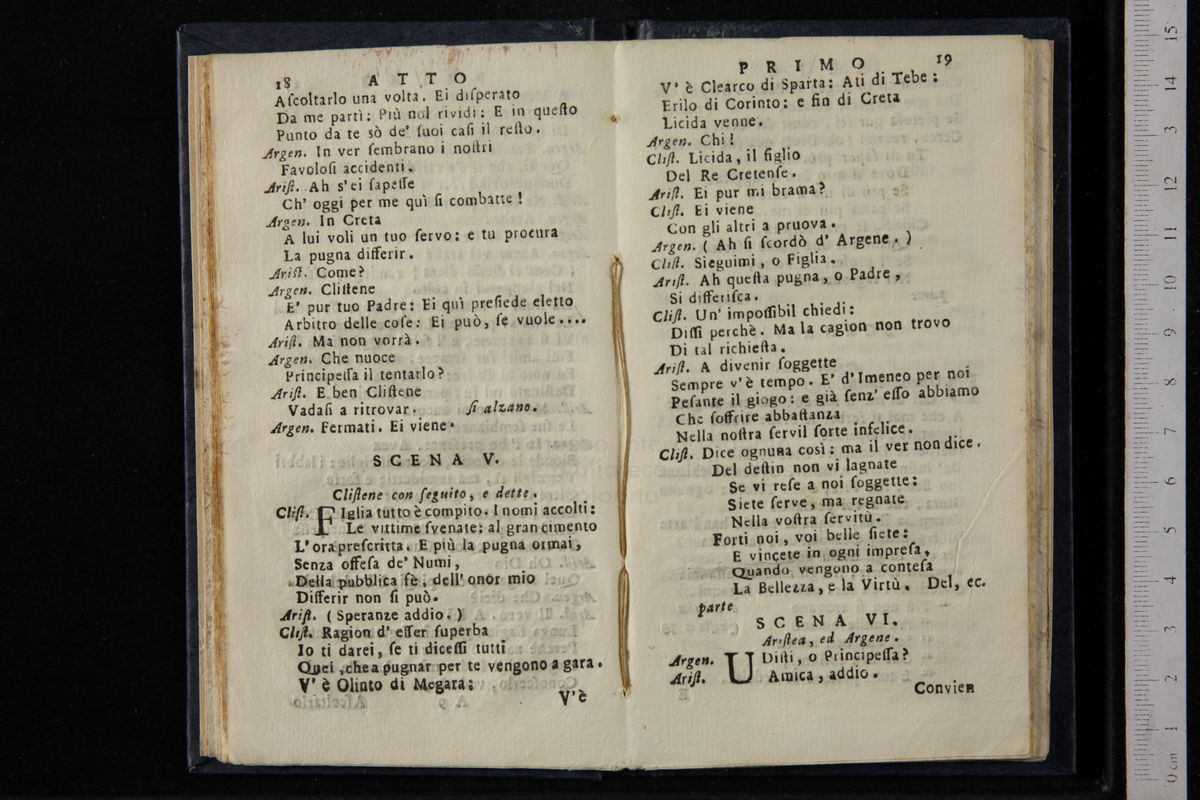 18 ATTO
Aſcoltarlo una volta. Ei diſperato
Da me partì: Più nol rividi: E in queſto
Punto da te sò de' ſuoi caſi il reſto.
Argen. In ver ſembrano i noſtri
Favoloſi accidenti.
Ariſt. Ah s'ei ſapeſſe
Ch' oggi per me quì ſi combatte!
Argen. In Creta
A lui voli un tuo ſervo: e tu procura
La pugna differir.
Ariſt. Come?
Argen. Cliſtene
E' pur tuo Padre: Ei quì preſiede eletto
Arbitro delle coſe: Ei può, ſe vuole....
Ariſt. Ma non vorrà.
Argen. Che nuoce
Principeſſa il tentarlo?
Ariſt. E ben Cliſtene
Vadaſi a ritrovar. ſi alzano.
Argen. Fermati. Ei viene.
SCENA V.
Cliſtene con ſeguito, e dette.
Cliſt. FIglia tutto è compito. I nomi accolti:
Le vittime ſvenate: al gran cimento
L'ora preſcritta. E più la pugna ormai,
Senza offeſa de' Numi,
Della pubblica fè, dell' onor mio
Differir non ſi può.
Ariſt. (Speranze addio.)
Cliſt. Ragion d' eſſer ſuperba
Io ti darei, ſe ti diceſſi tutti
Quei, che a pugnar per te vengono a gara.
V' è Olinto di Megara;
V'è
PRIMO 19
V' è Clearco di Sparta: Ati di Tebe:
Erilo di Corinto: e fin di Creta
Licida venne.
Argen. Chi!
Cliſt. Licida, il figlio
Del Re Cretenſe.
Ariſt. Ei pur mi brama?
Cliſt. Ei viene
Con gli altri a pruova.
Argen. (Ah ſi ſcordò d' Argene.)
Cliſt. Sieguimi, o Figlia.
Ariſt. Ah queſta pugna, o Padre,
Si differiſca.
Cliſt. Un' impoſſibil chiedi:
Diſſi perchè. Ma la cagion non trovo
Di tal richieſta.
Ariſt. A divenir ſoggette
Sempre v'è tempo. E' d'Imeneo per noi
Peſante il giogo: e già ſenz' eſſo abbiamo
Che ſoffrire abbaſtanza
Nella noſtra ſervil ſorte infelice.
Cliſt. Dice ognuna così: ma il ver non dice.
Del deſtin non vi lagnate
Se vi reſe a noi ſoggette:
Siete ſerve, ma regnate
Nella voſtra ſervitù.
Forti noi, voi belle ſiete:
E vincete in ogni impreſa,
Quando vengono a conteſa
La Bellezza, e la Virtù. Del, ec.
parte
SCENA VI.
Ariſtea, ed Argene.
Argen. UDiſti, o Principeſſa?
Ariſt. Amica, addio.
Convien
0 cm 1 2 3 4 5 6 7 8 9 10 11 12 13 14 15